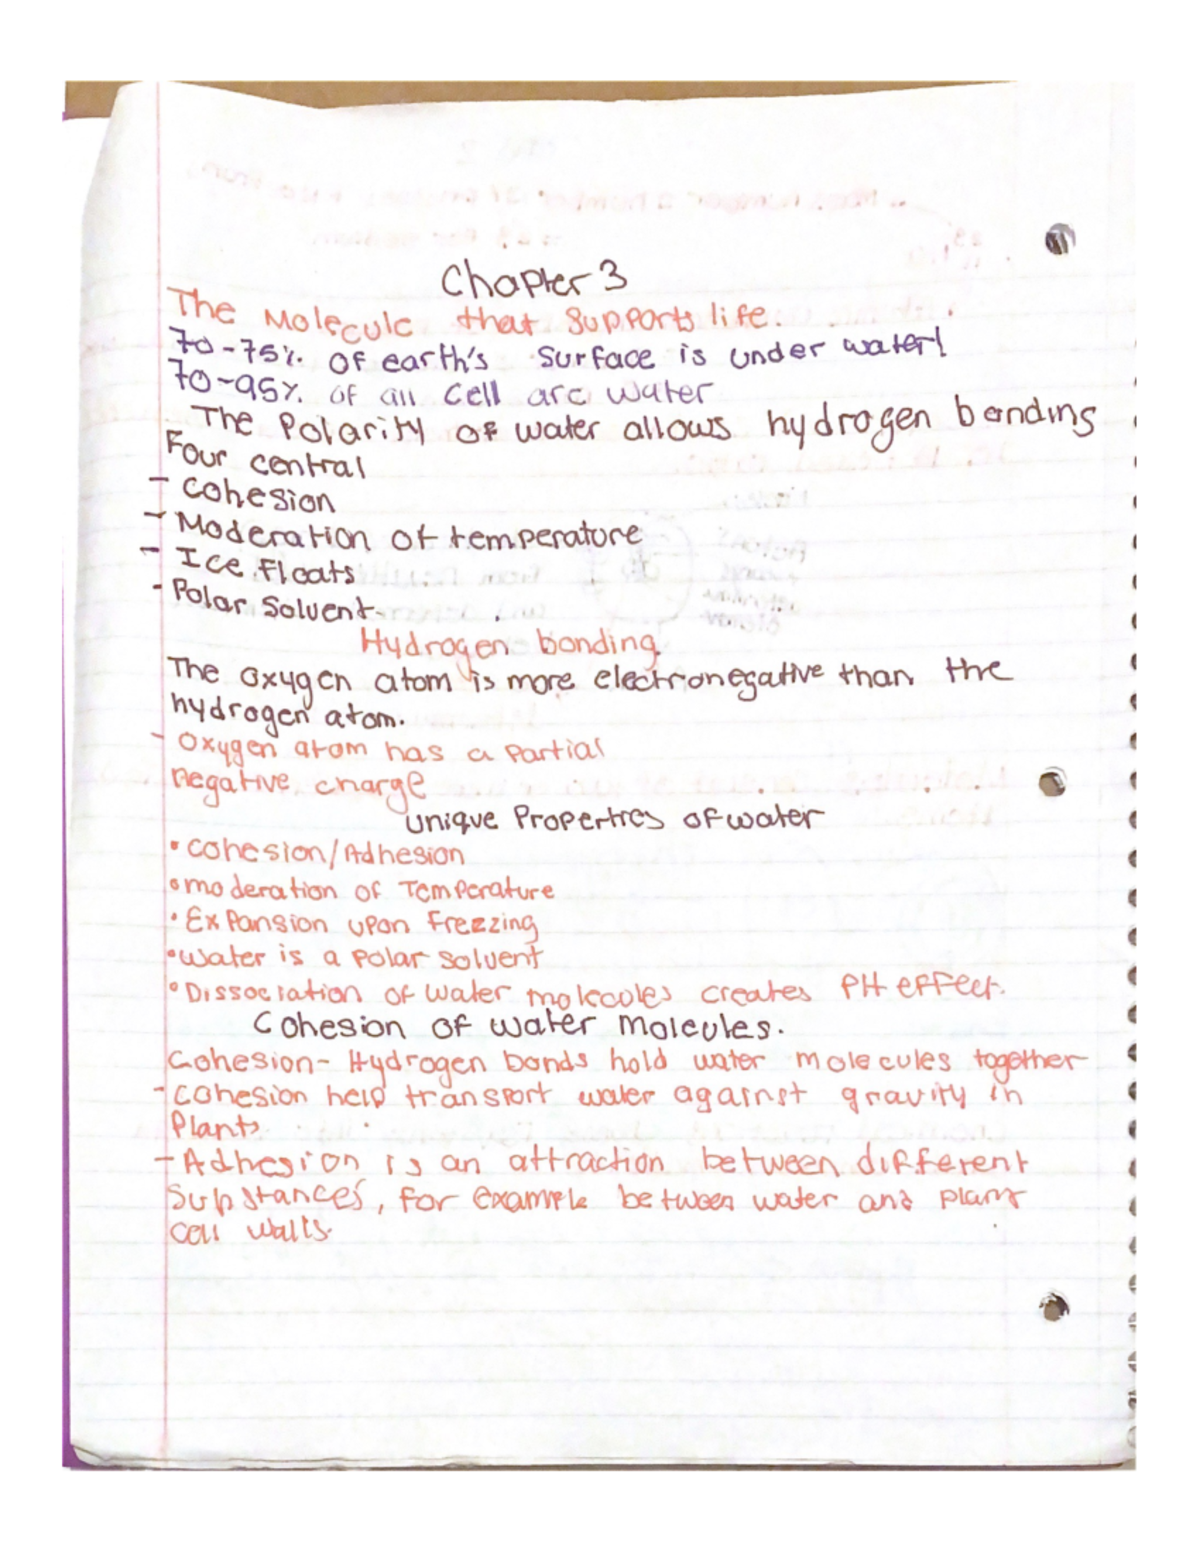 Chapter 3
The Molecule that Supports life.
70-75% of earth's surface is under water!
70-95% of all cell are water
The Polarity of water allows hydrogen bonding
Four central
- cohesion
- Moderation of temperature
- Ice floats
- Polar Solvent
Hydrogen bonding
The oxygen atom is more electronegative than the
hydrogen atom.
- Oxygen atom has a partial
negative charge
Unique Properties of water
• Cohesion/Adhesion
• moderation of Temperature
• Expansion upon Freezing
• Water is a polar solvent
• Dissociation of water molecules creates PH effect.
Cohesion of water molecules.
Cohesion- Hydrogen bonds hold water molecules together
- cohesion help transport water against gravity in
Plants
- Adhesion is an attraction between different
Substances, for example between water and plant
cell walls.